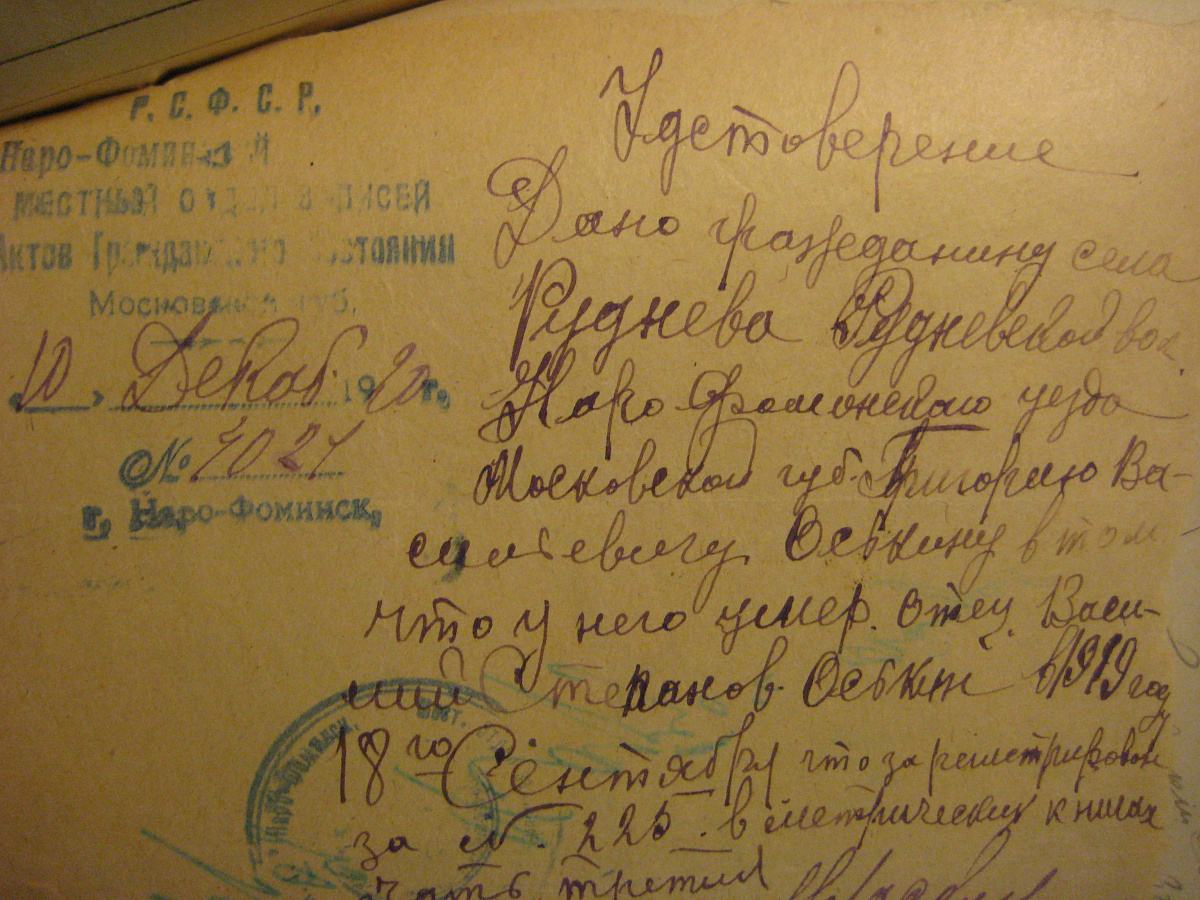 Р. С. Ф. С. Р.
Наро-Фоминский
МЕСТНЫЙ ОТДЕЛ ЗАПИСЕЙ
Актов Гражданского Состояния
Московской губ.
10, Декаб. 1920 г.,
№
г. Наро-Фоминск,
Удстоверение
Дано гражеданину села
Руднева Рудневской вол.
Наро Фоминскаго уезда
Московской губ. Григорию Ва-
сильевичу Оськину в том
что у него умер. отец. Васи-
лий Степанов. Оськин в 1919 год
18го Сентября что зарегистрирован
за № 225. в метрических книгах
Часть третия